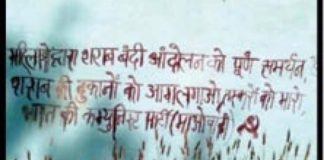 महिलाओं द्वारा शराब बंदी आंदोलन को पूर्ण समर्थन
शराब की दुकानों को आग लगाओ, तस्करों को मारो,
भारत की कम्युनिस्ट पार्टी (माओवादी)